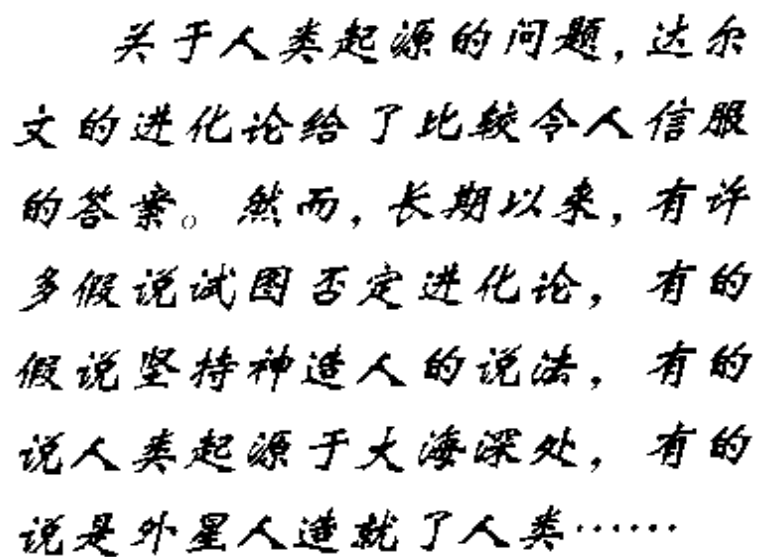 关于人类起源的问题，达尔
文的进化论给了比较令人信服
的答案。然而，长期以来，有许
多假说试图否定进化论，有的
假说坚持神造人的说法，有的
说人类起源于大海深处，有的
说是外星人造就了人类……